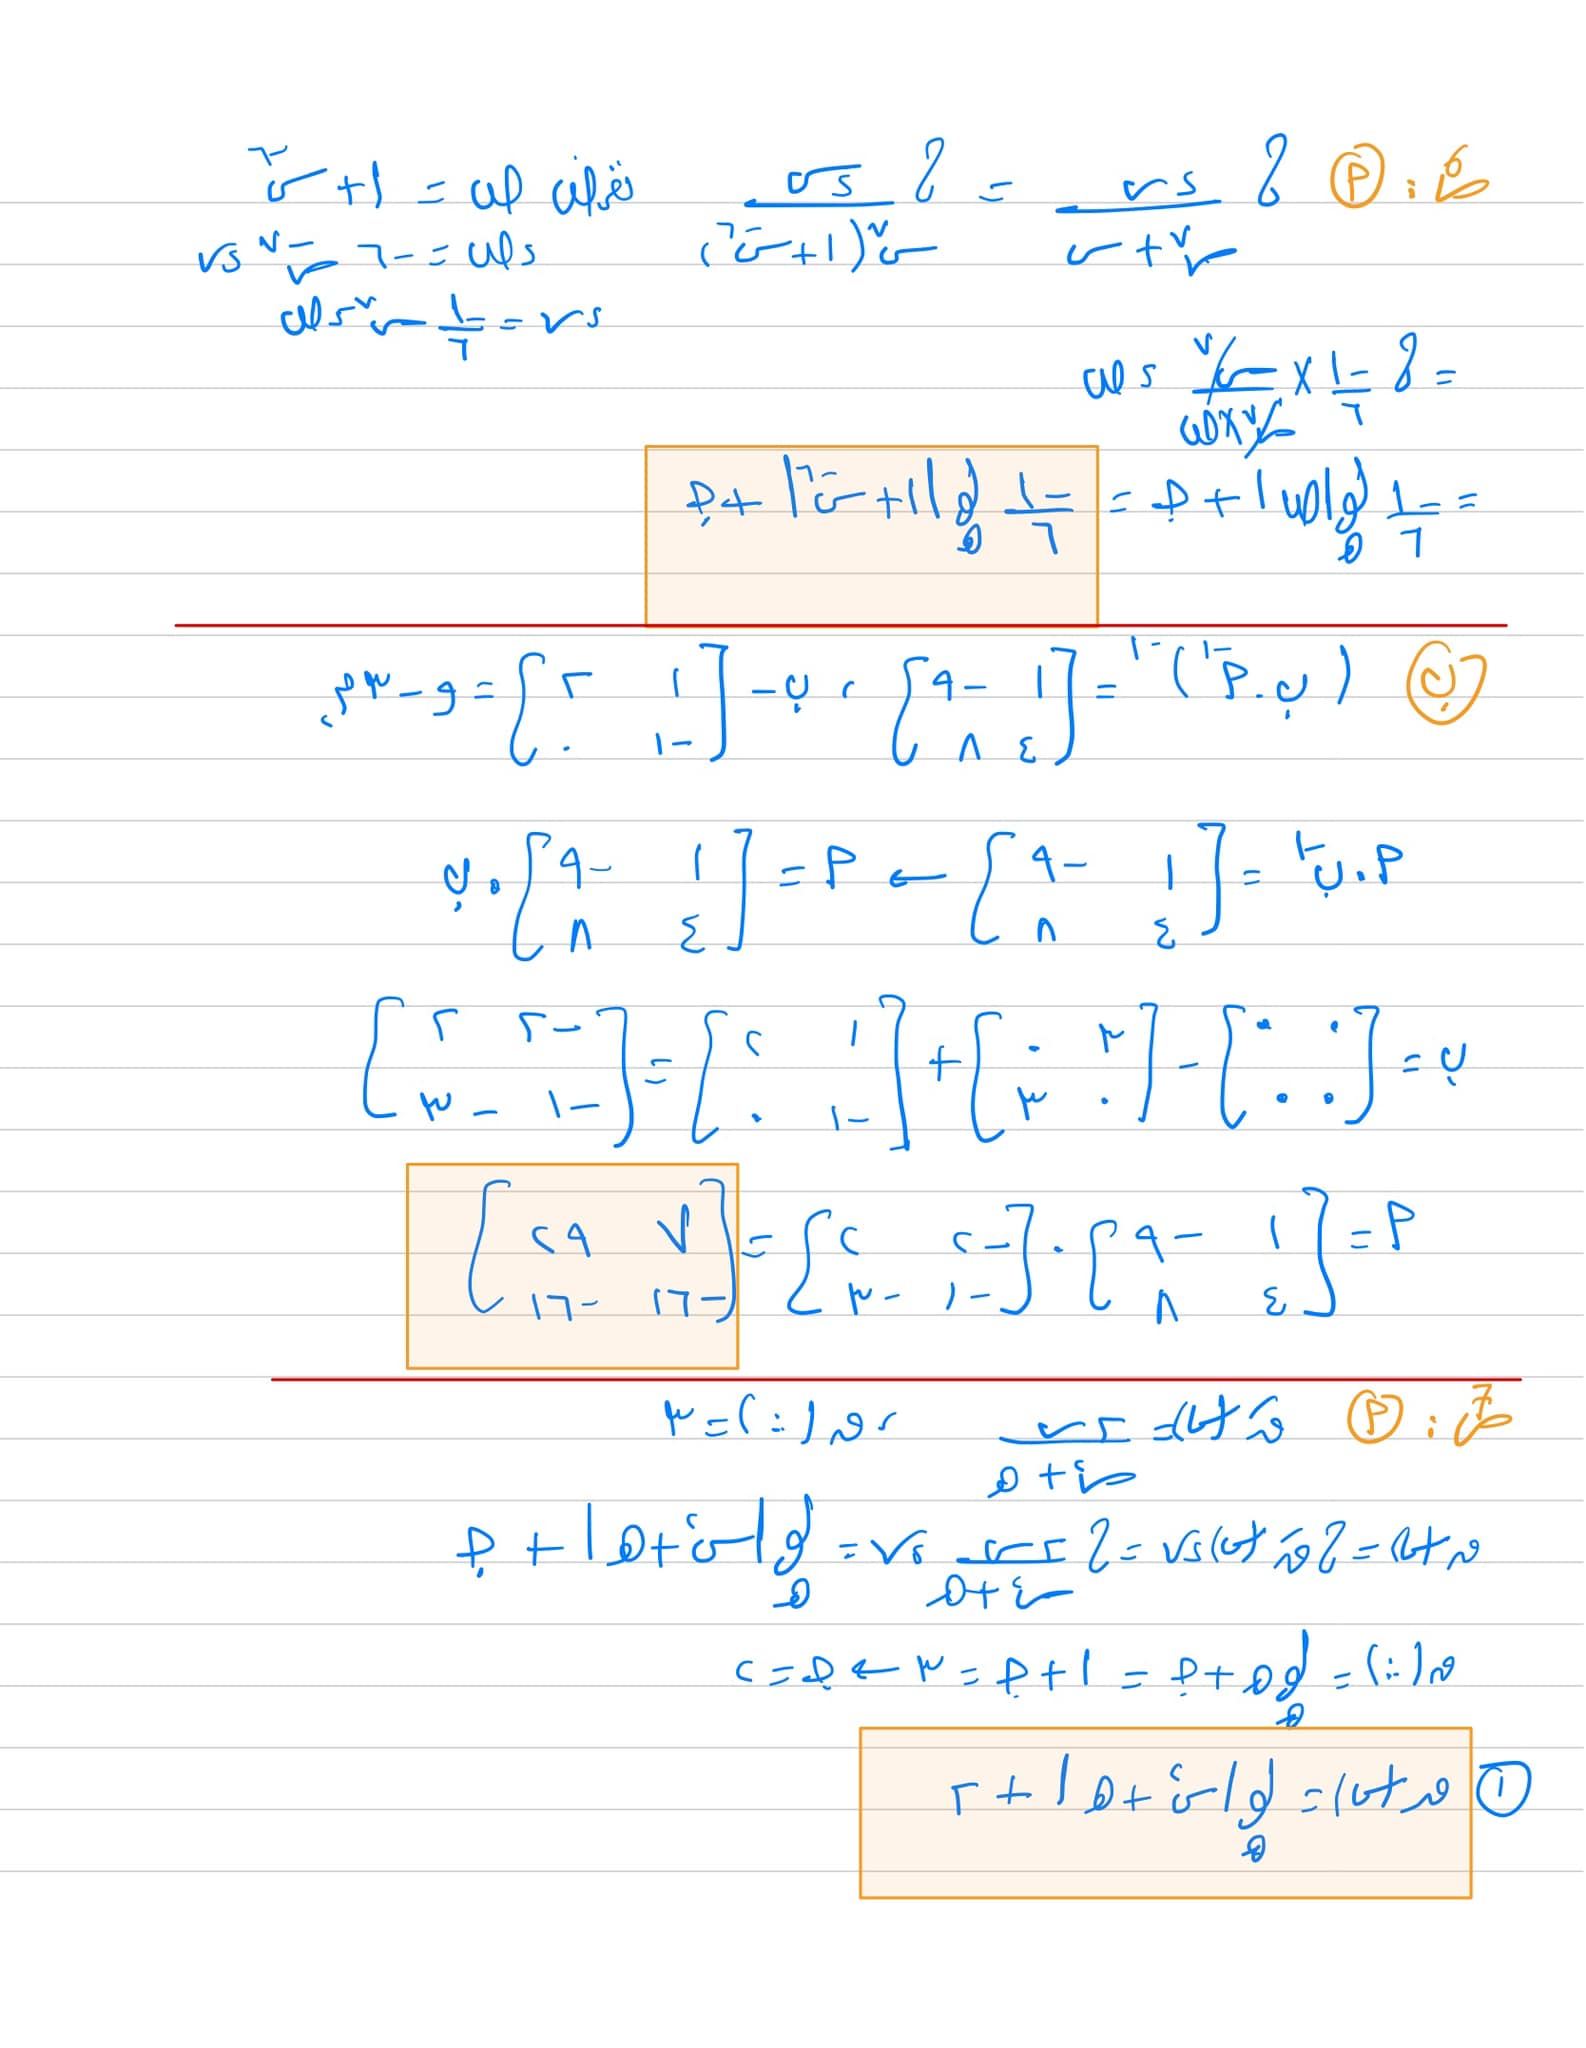 س٦ : (أ) ∫ دس / (س٧ + س) = ∫ دس / س٧(١ + س-٦) نفرض ص = ١ + س-٦
دص = -٦ س-٧ دس
دس = -١/٦ س٧ دص
= ∫ -١/٦ × س٧ / (س٧ × ص) دص
= -١/٦ لو_هـ |ص| + جـ = -١/٦ لو_هـ |١ + س-٦| + جـ
(ب) (ب . أ-١)-١ = [١ -٩ ; ٤ ٨] ، ب - [١ ٢ ; -١ ٠] = و - ٣م
أ . ب-١ = [١ -٩ ; ٤ ٨] ← أ = [١ -٩ ; ٤ ٨] . ب
ب = [٠ ٠ ; ٠ ٠] - [٣ ٠ ; ٠ ٣] + [١ ٢ ; -١ ٠] = [-٢ ٢ ; -١ -٣]
أ = [١ -٩ ; ٤ ٨] . [-٢ ٢ ; -١ -٣] = [٧ ٢٩ ; -١٦ -١٦]
س٧ : (أ) قَ(س) = ٢س / (س٢ + هـ) ، ق(٠) = ٣
ق(س) = ∫ قَ(س) دس = ∫ ٢س / (س٢ + هـ) دس = لو_هـ |س٢ + هـ| + جـ
ق(٠) = لو_هـ هـ + جـ = ١ + جـ = ٣ ← جـ = ٢
① ق(س) = لو_هـ |س٢ + هـ| + ٢